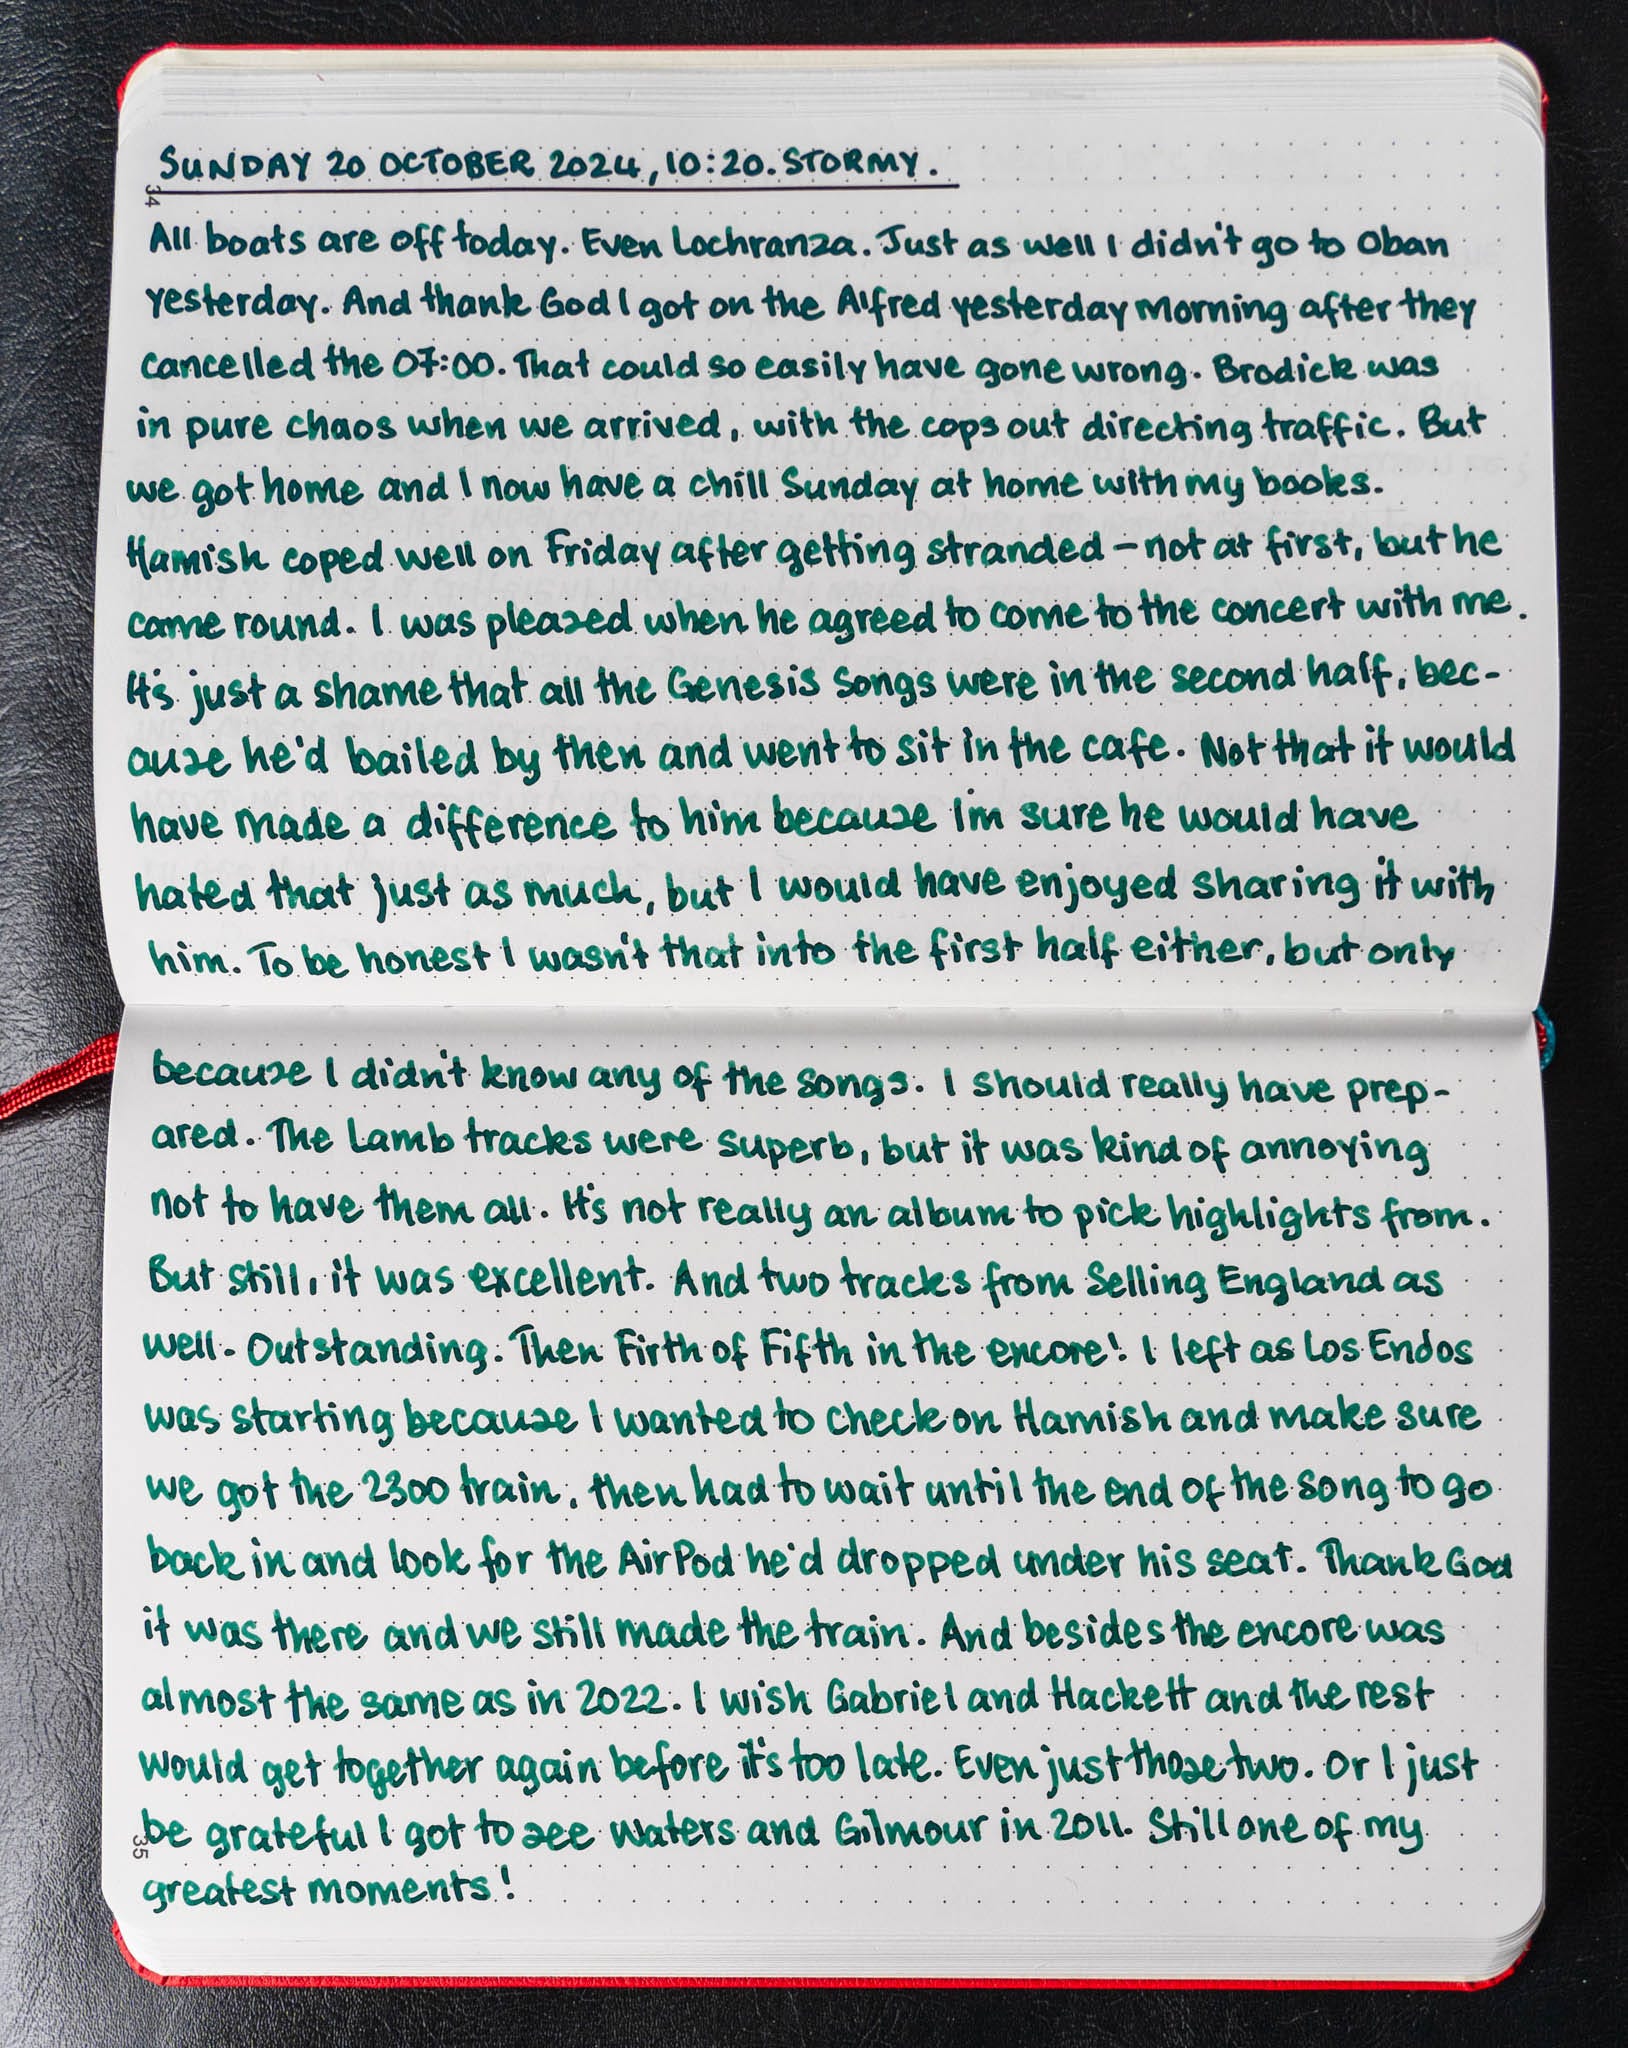 SUNDAY 20 OCTOBER 2024, 10:20. STORMY.
34
All boats are off today. Even Lochranza. Just as well I didn't go to Oban
yesterday. And thank God I got on the Alfred yesterday morning after they
cancelled the 07:00. That could so easily have gone wrong. Brodick was
in pure chaos when we arrived, with the cops out directing traffic. But
we got home and I now have a chill Sunday at home with my books.
Hamish coped well on Friday after getting stranded – not at first, but he
came round. I was pleased when he agreed to come to the concert with me.
It's just a shame that all the Genesis songs were in the second half, bec-
ause he'd bailed by then and went to sit in the cafe. Not that it would
have made a difference to him because I'm sure he would have
hated that just as much, but I would have enjoyed sharing it with
him. To be honest I wasn't that into the first half either, but only
because I didn't know any of the songs. I should really have prep-
ared. The Lamb tracks were superb, but it was kind of annoying
not to have them all. It's not really an album to pick highlights from.
But still, it was excellent. And two tracks from Selling England as
well. Outstanding. Then Firth of Fifth in the encore! I left as Los Endos
was starting because I wanted to check on Hamish and make sure
we got the 2300 train, then had to wait until the end of the song to go
back in and look for the AirPod he'd dropped under his seat. Thank God
it was there and we still made the train. And besides the encore was
almost the same as in 2022. I wish Gabriel and Hackett and the rest
would get together again before it's too late. Even just those two. Or I just
be grateful I got to see Waters and Gilmour in 2011. Still one of my
35
greatest moments!